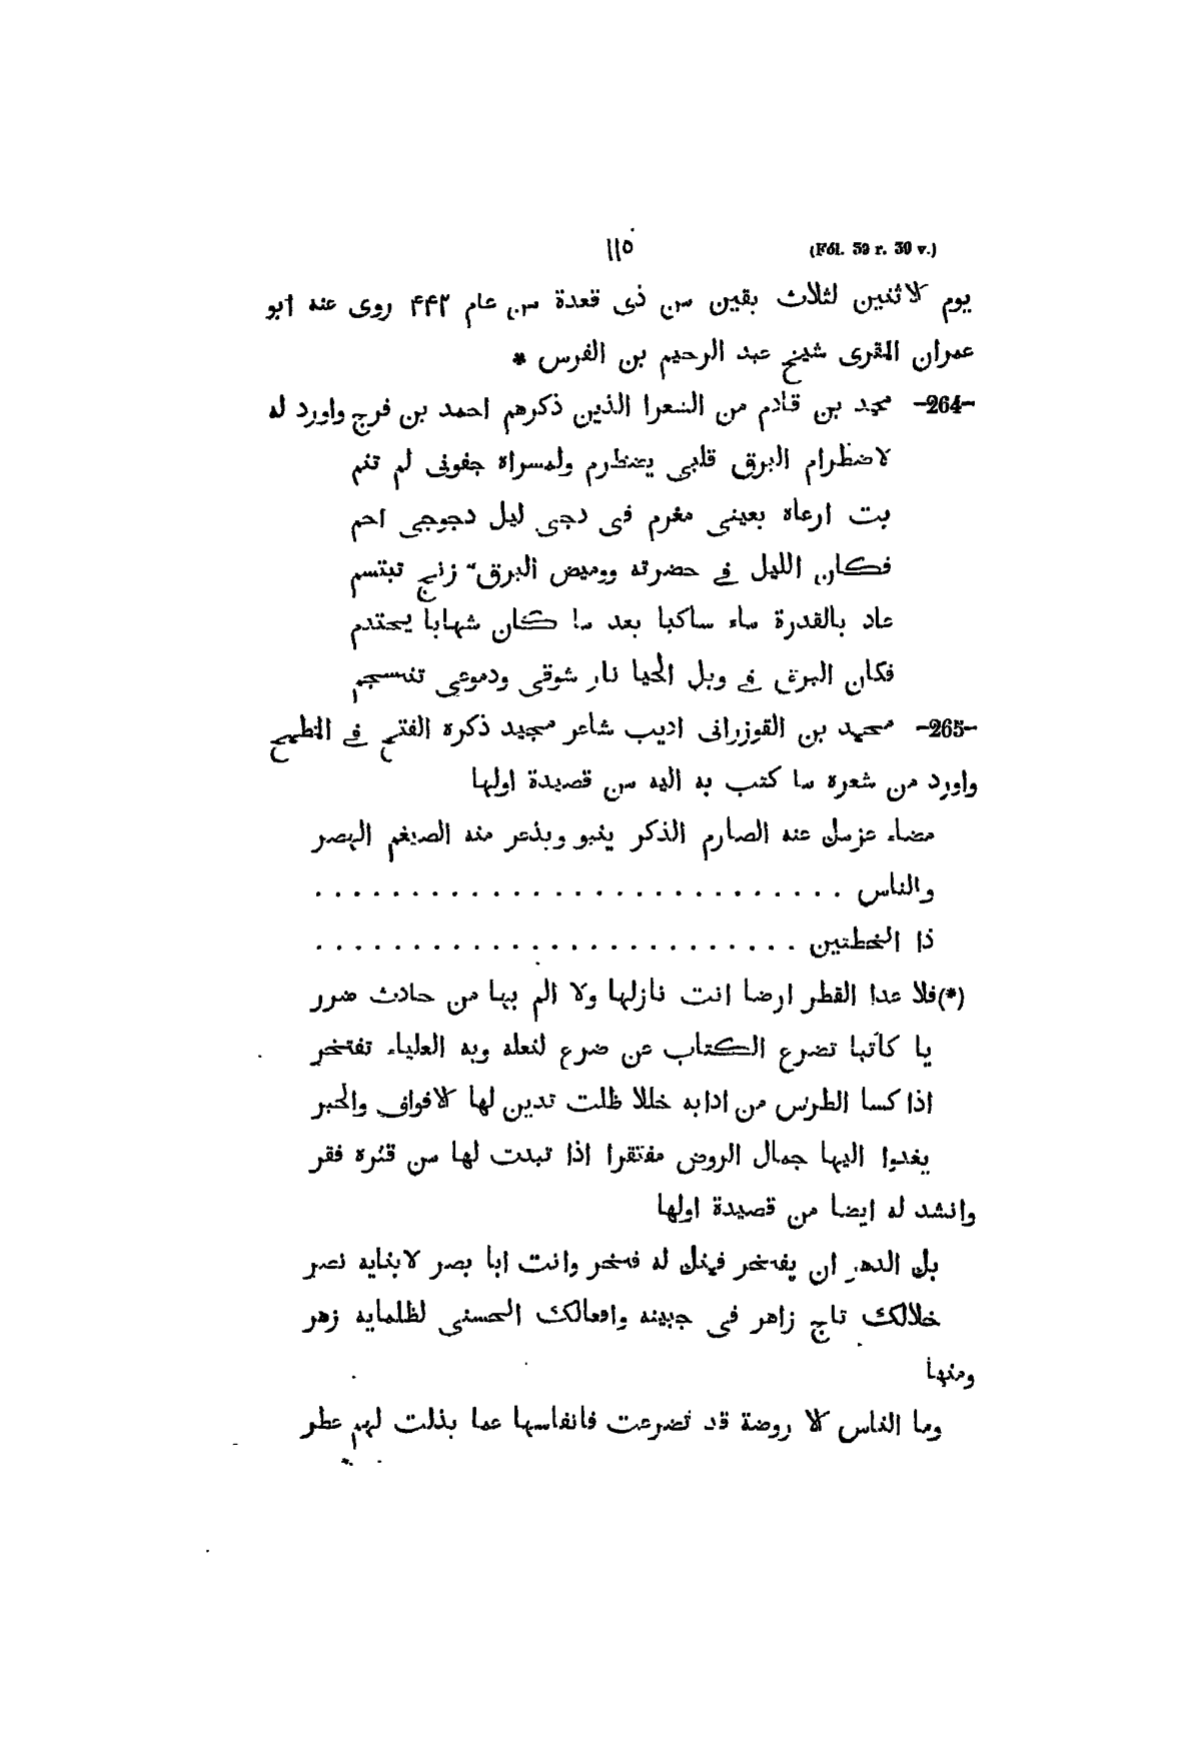 (Fól. 59 r. 30 v.) ١١٥
يوم الاثنين لثلاث بقين من ذى قعدة من عام ۴۴۲ روى عنه ابو
عمران المقرى شيخ عبد الرحيم بن الفرس *
-264- محمد بن قادم من الشعرا الذين ذكرهم احمد بن فرج واورد له
لاضطرام البرق قلبى يضطرم ولمسراة جفونى لم تنم
بت ارعاة بعينى مغرم فى دجى ليل دجوجى احم
فكان الليل فى حضرته ووميض البرق زنج تبتسم
عاد بالقدرة ماء ساكبا بعد ما كان شهابا يحتدم
فكان البرق فى وبل الحيا نار شوقى ودموعى تنسجم
-265- محمد بن القوزرانى اديب شاعر مجيد ذكرة الفتح فى المطمح
واورد من شعره ما كتب به اليه من قصيدة اولها
مضاء عزمك عنه الصارم الذكر ينبو ويذعر منه الضيغم الهصر
والناس . . . . . . . . . . . . . . . . . . . . . . . . . . .
ذا الخطتين . . . . . . . . . . . . . . . . . . . . . . . . .
(*) فلا عدا القطر ارضا انت نازلها ولا الم بها من حادث ضرر
يا كاتبا تضرع الكتاب عن ضرع لنعله وبه العلياء تفتخر
اذا كسا الطرس من ادابه خللا ظلت تدين لها الافواف والحبر
يغدوا اليها جمال الروض مفتقرا اذا تبدت لها من فقر
وانشد له ايضا من قصيدة اولها
بل الدهر ان يفخر فمنك له فخر وانت ابا بصر لابنايه نصر
خلالك تاج زاهر فى جبينه وافعالك الحسنى لظلمايه زهر
ومنها
وما الناس الا روضة قد تضرعت فانفاسها عما بذلت لهم عطر